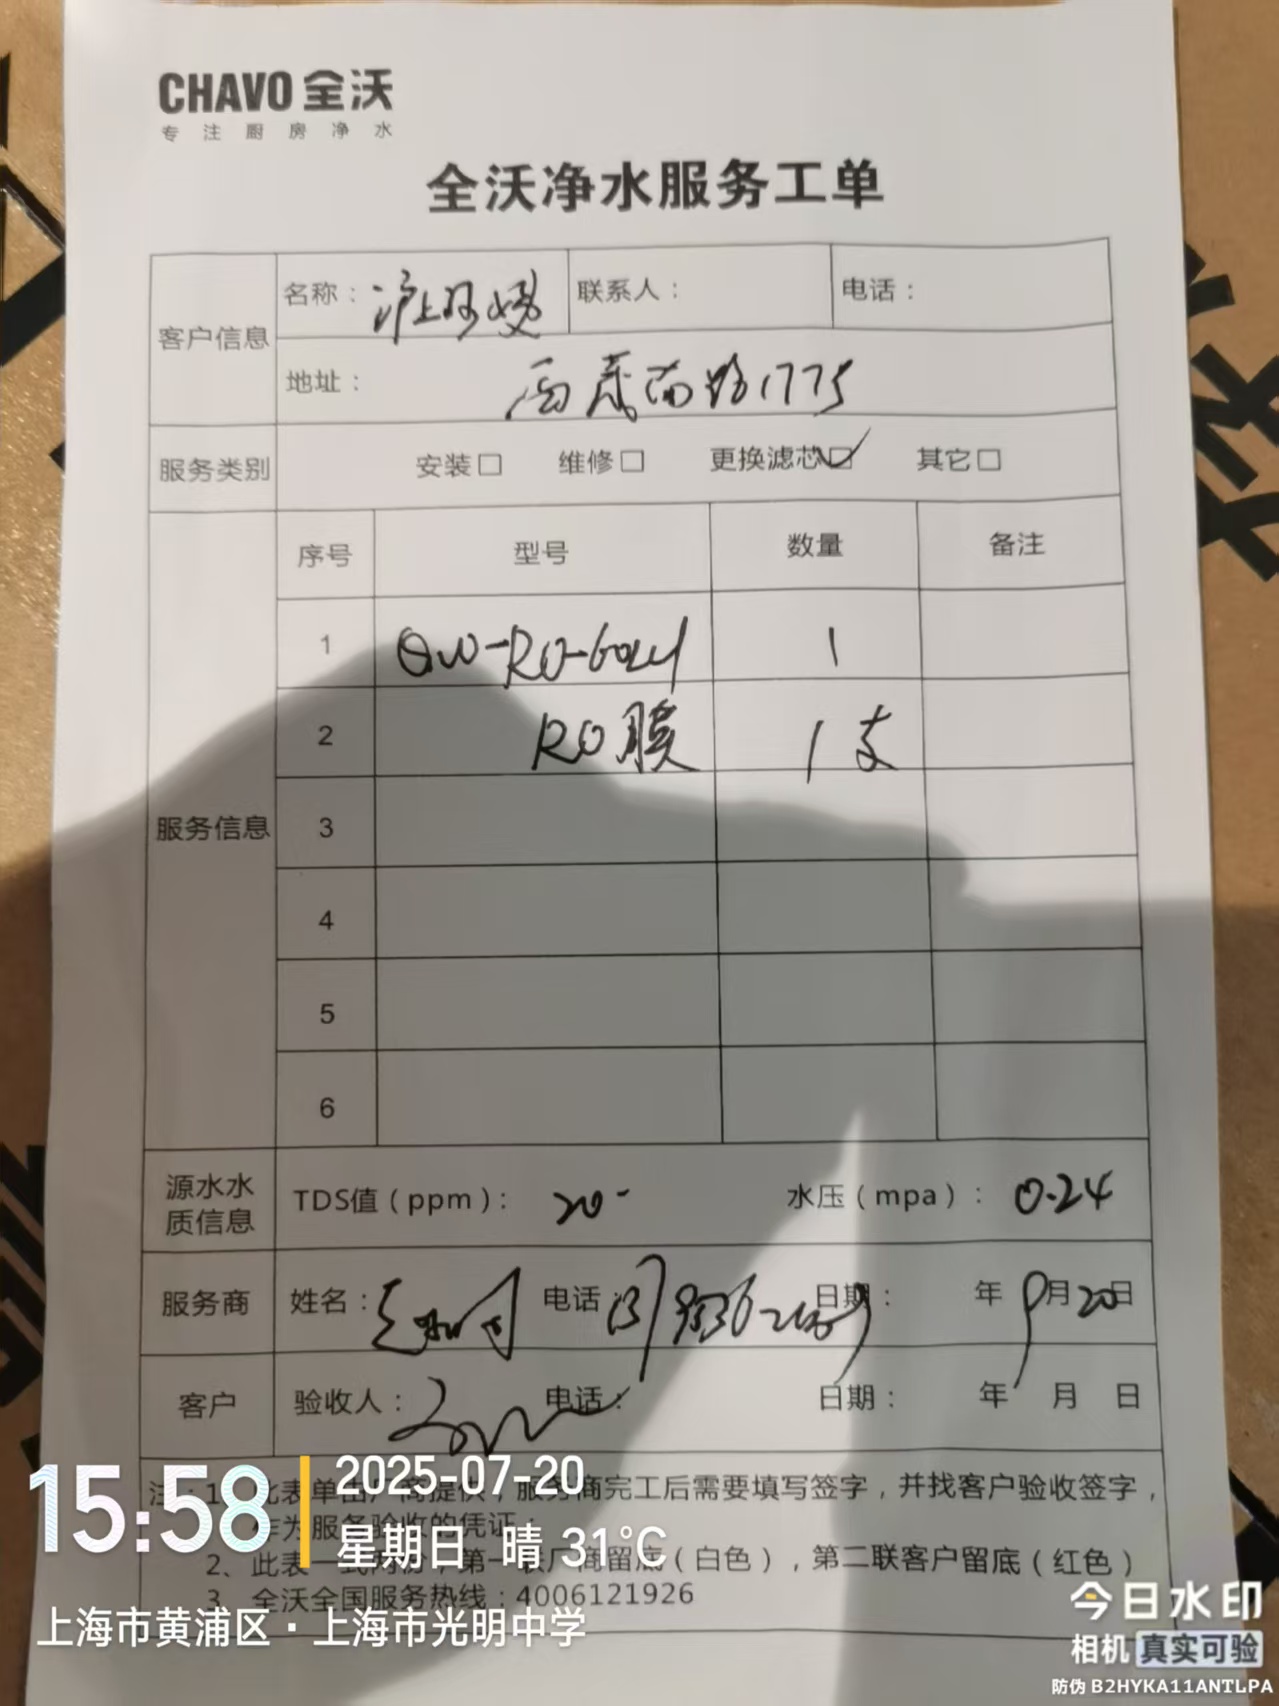 CHAVO 全沃
专注厨房净水
全沃净水服务工单
客户信息 名称：沪上阿姨 联系人： 电话：
地址： 西藏南路1775
服务类别 安装□ 维修□ 更换滤芯☑ 其它□
服务信息 序号 型号 数量 备注
1 QW-RO- 1
2 RO膜 1支
3
4
5
6
源水水质信息 TDS值（ppm）： 20 水压（mpa）： 0.24
服务商 姓名： 电话： 日期： 年 月20日
客户 验收人： 电话： 日期： 年 月 日
注：1、此表单由厂商提供，服务商完工后需要填写签字，并找客户验收签字，
作为服务验收的凭证；
2、此表一式两份，第一联厂商留底（白色），第二联客户留底（红色）
3、全沃全国服务热线：4006121926
15:58
2025-07-20
星期日 晴 31°C
上海市黄浦区·上海市光明中学
今日水印
相机 真实可验
防伪 B2HYKA11ANTLPA